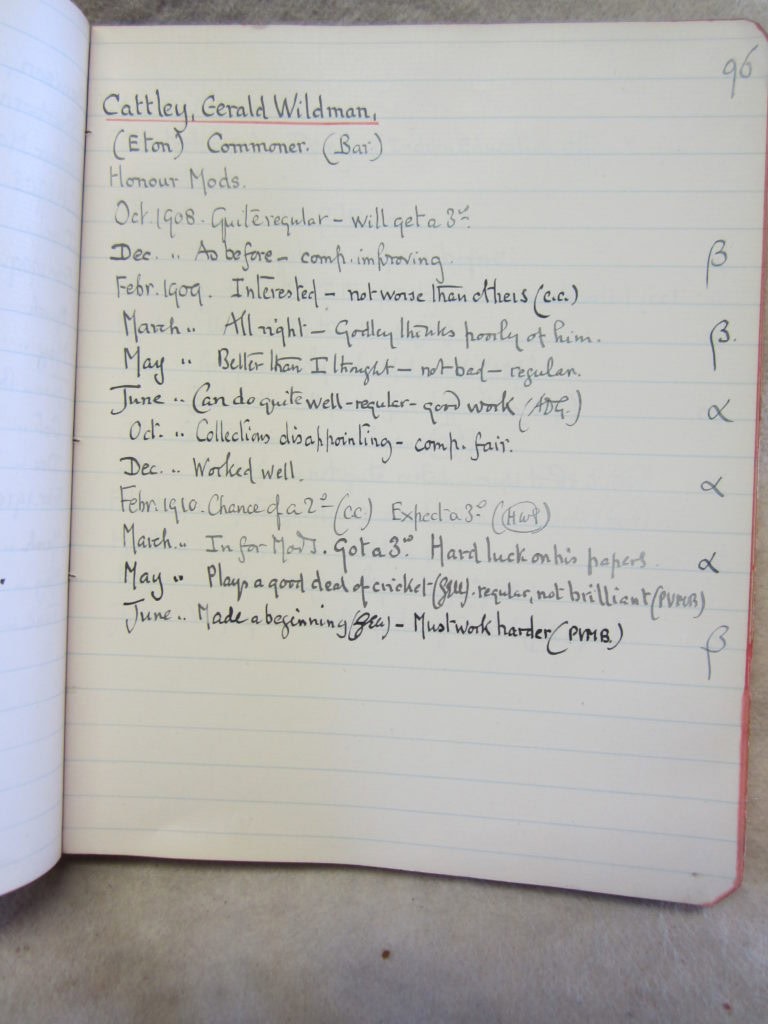 96
Cattley, Gerald Wildman,
(Eton) Commoner. (Bar)
Honour Mods.
Oct. 1908. Quite regular – will get a 3rd.
Dec. " As before – comp. improving. β
Febr. 1909. Interested – not worse than others (C.C.)
March " All right – Godley thinks poorly of him. β.
May " Better than I thought – not bad – regular.
June " Can do quite well – regular – good work (ADG.) α
Oct. " Collections disappointing – comp. fair.
Dec. " Worked well. α
Febr. 1910. Chance of a 2d – (CC) Expect a 3d (HWG)
March " In for Mods. Got a 3d. Hard luck on his papers. α
May " Plays a good deal of cricket – regular, not brilliant (PVMB)
June " Made a beginning – Must work harder (PVMB.) β